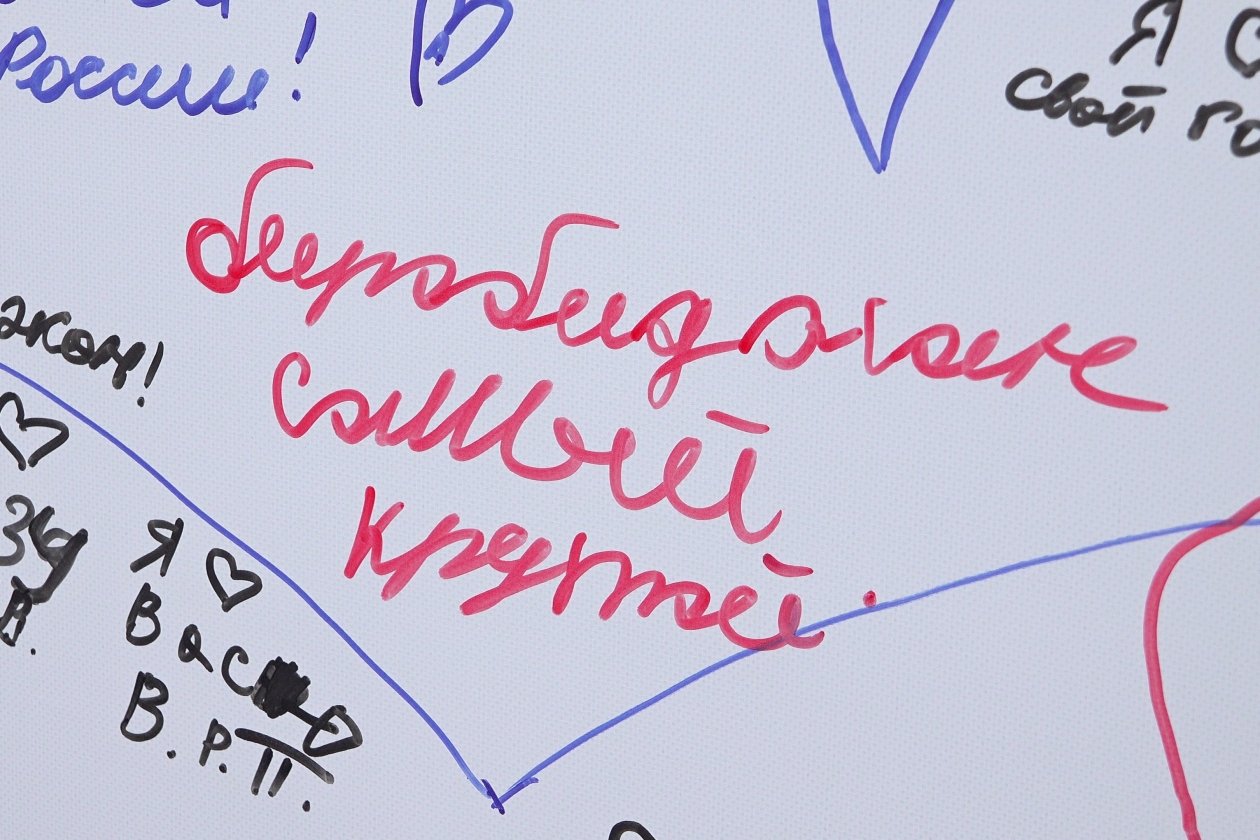 России!
В
Я
свой го
биробиджане
самый
крутой.
аком!
Я
Васю
В.Р.П.